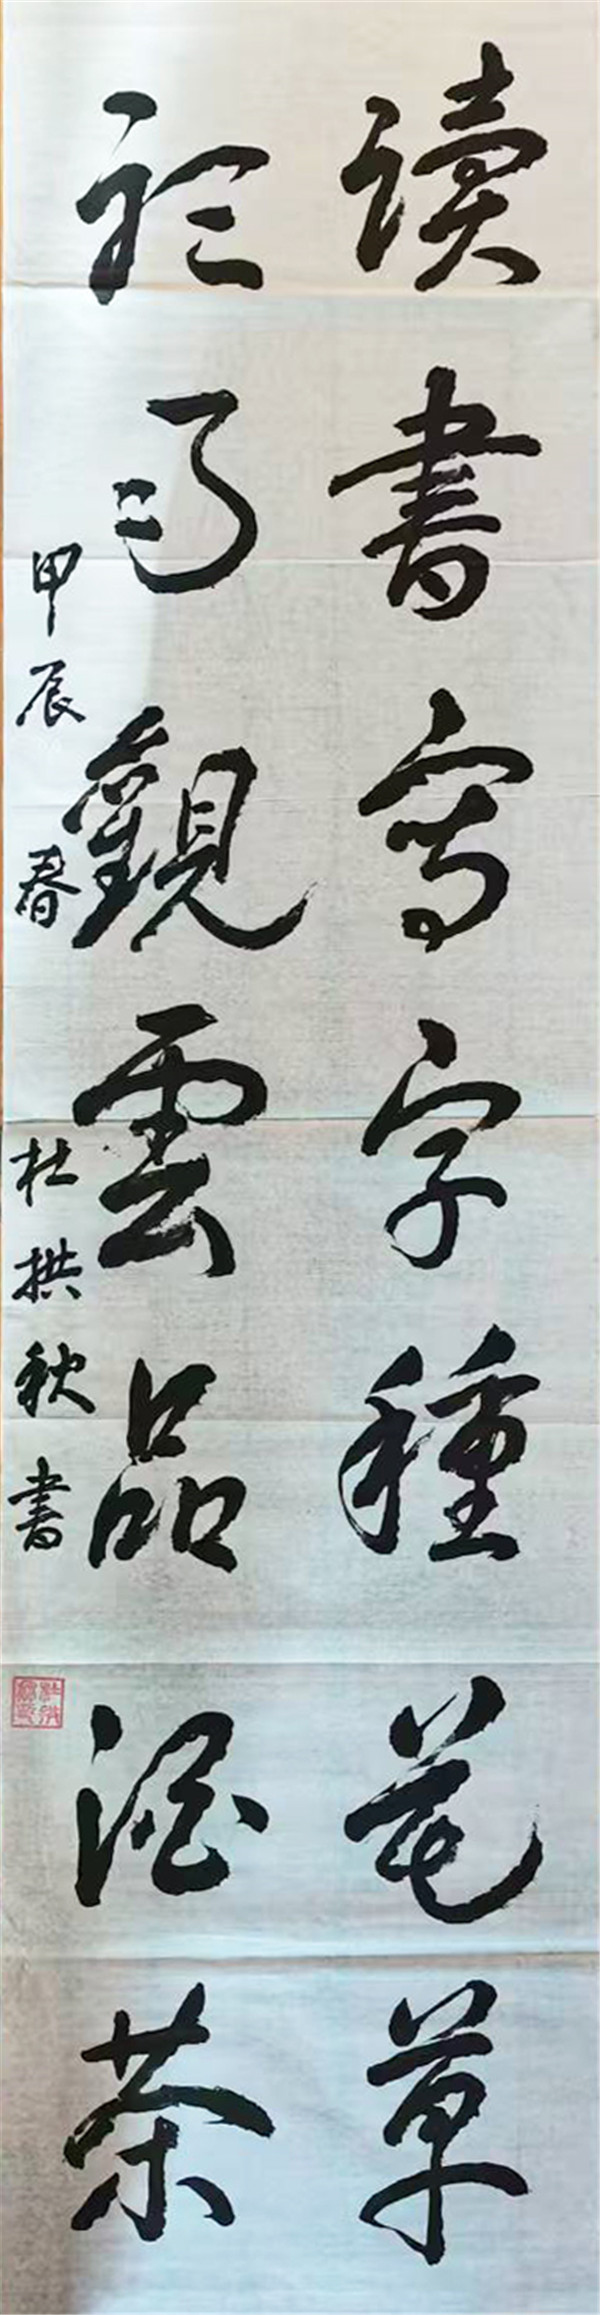 讀書寫字種花草
聽雨觀雲品酒茶
甲辰春 杜拱秋書